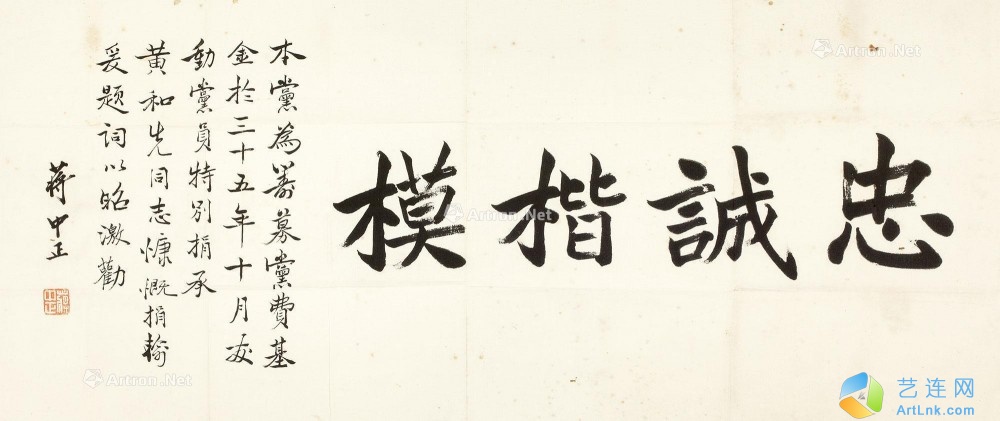 忠誠楷模
本黨為籌募黨費基
金於三十五年十月發
動黨員特別捐承
黃和先同志慷慨捐輸
爰題詞以昭激勸
蔣中正
蔣中正
Artron.Net
Artron.Net
Artron.Net
艺连网
ArtLnk.com